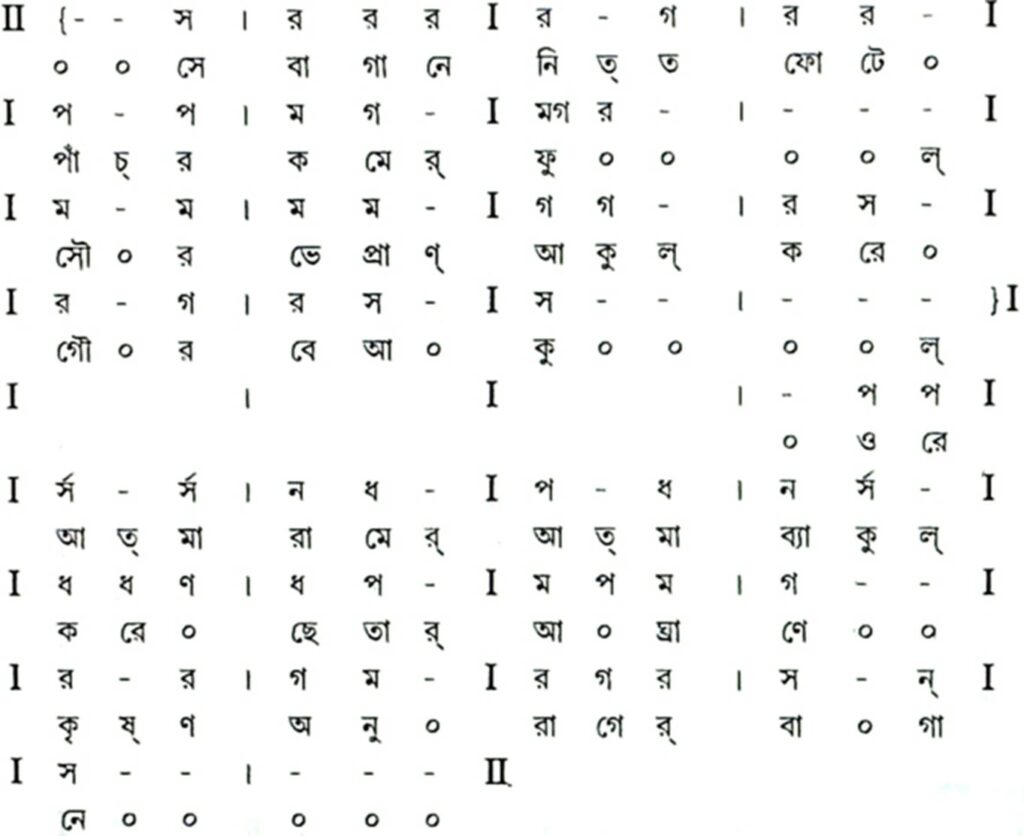 II {- - স । র র র I র - গ । র র - I
০ ০ সে বা গা নে নি ত্ ত ফো টে ০
I প - প । ম গ - I মগ র - । - - - I
পাঁ চ্ র ক মে র্ ফু ০ ০ ০ ০ ল্
I ম - ম । ম ম - I গ গ - । র স - I
সৌ ০ র ভে প্রা ণ্ আ কু ল্ ক রে ০
I র - গ । র স - I স - - । - - - }I
গৌ ০ র বে আ ০ কু ০ ০ ০ ০ ল্
I । I । - প প I
০ ও রে
I র্স - র্স । ন ধ - I প - ধ । ন র্স - I
আ ত্ মা রা মে র্ আ ত্ মা ব্যা কু ল্
I ধ ধ ণ । ধ প - I ম প ম । গ - - I
ক রে ০ ছে তা র্ আ ০ ঘ্রা ণে ০ ০
I র - র । গ ম - I র গ র । স - ন্ I
কৃ ষ্ ণ অ নু ০ রা গে র্ বা ০ গা
I স - - । - - - II
নে ০ ০ ০ ০ ০